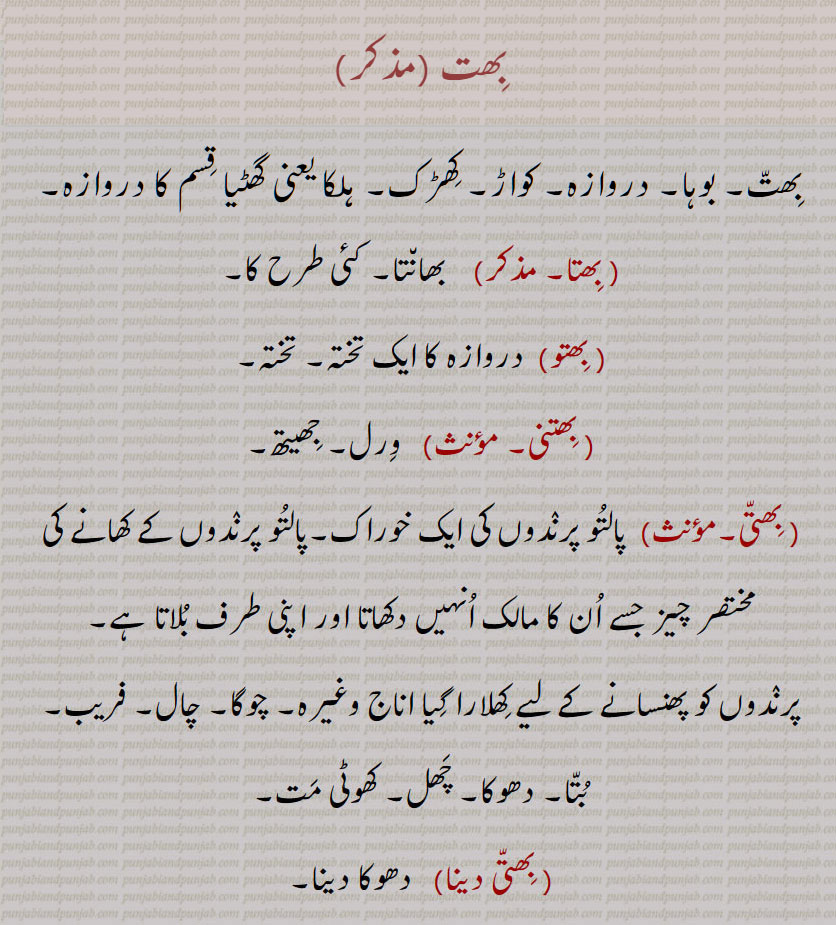 بِھت (مذکر)
بِھتّ۔ بوہا۔ دروازہ۔ کواڑ۔ کِھڑک۔ ہلکا یعنی گھٹیا قِسم کا دروازہ۔
(بِھتا۔ مذکر) بھانّتا۔ کئی طرح کا۔
(بِھتو) دروازہ کا ایک تختہ۔ تختہ۔
(بِھتنی۔ مؤنث) وِرل۔ جِھیتھ۔
(بِھتّی۔مؤنث) پالتُو پرنْدوں کی ایک خوراک۔پالتُو پرنْدوں کے کھانے کی
مختصر چیز جسے اُن کا مالک اُنہیں دکھاتا اور اپنی طرف بُلاتا ہے۔
پرنْدوں کو پھنسانے کے لیے کِھلارا گیا اناج وغیرہ۔ چوگا۔ چال۔ فریب۔
بُتّا۔ دھوکا۔ چَھل۔ کھوٹی مَت۔
(بِھتّی دینا) دھوکا دینا۔